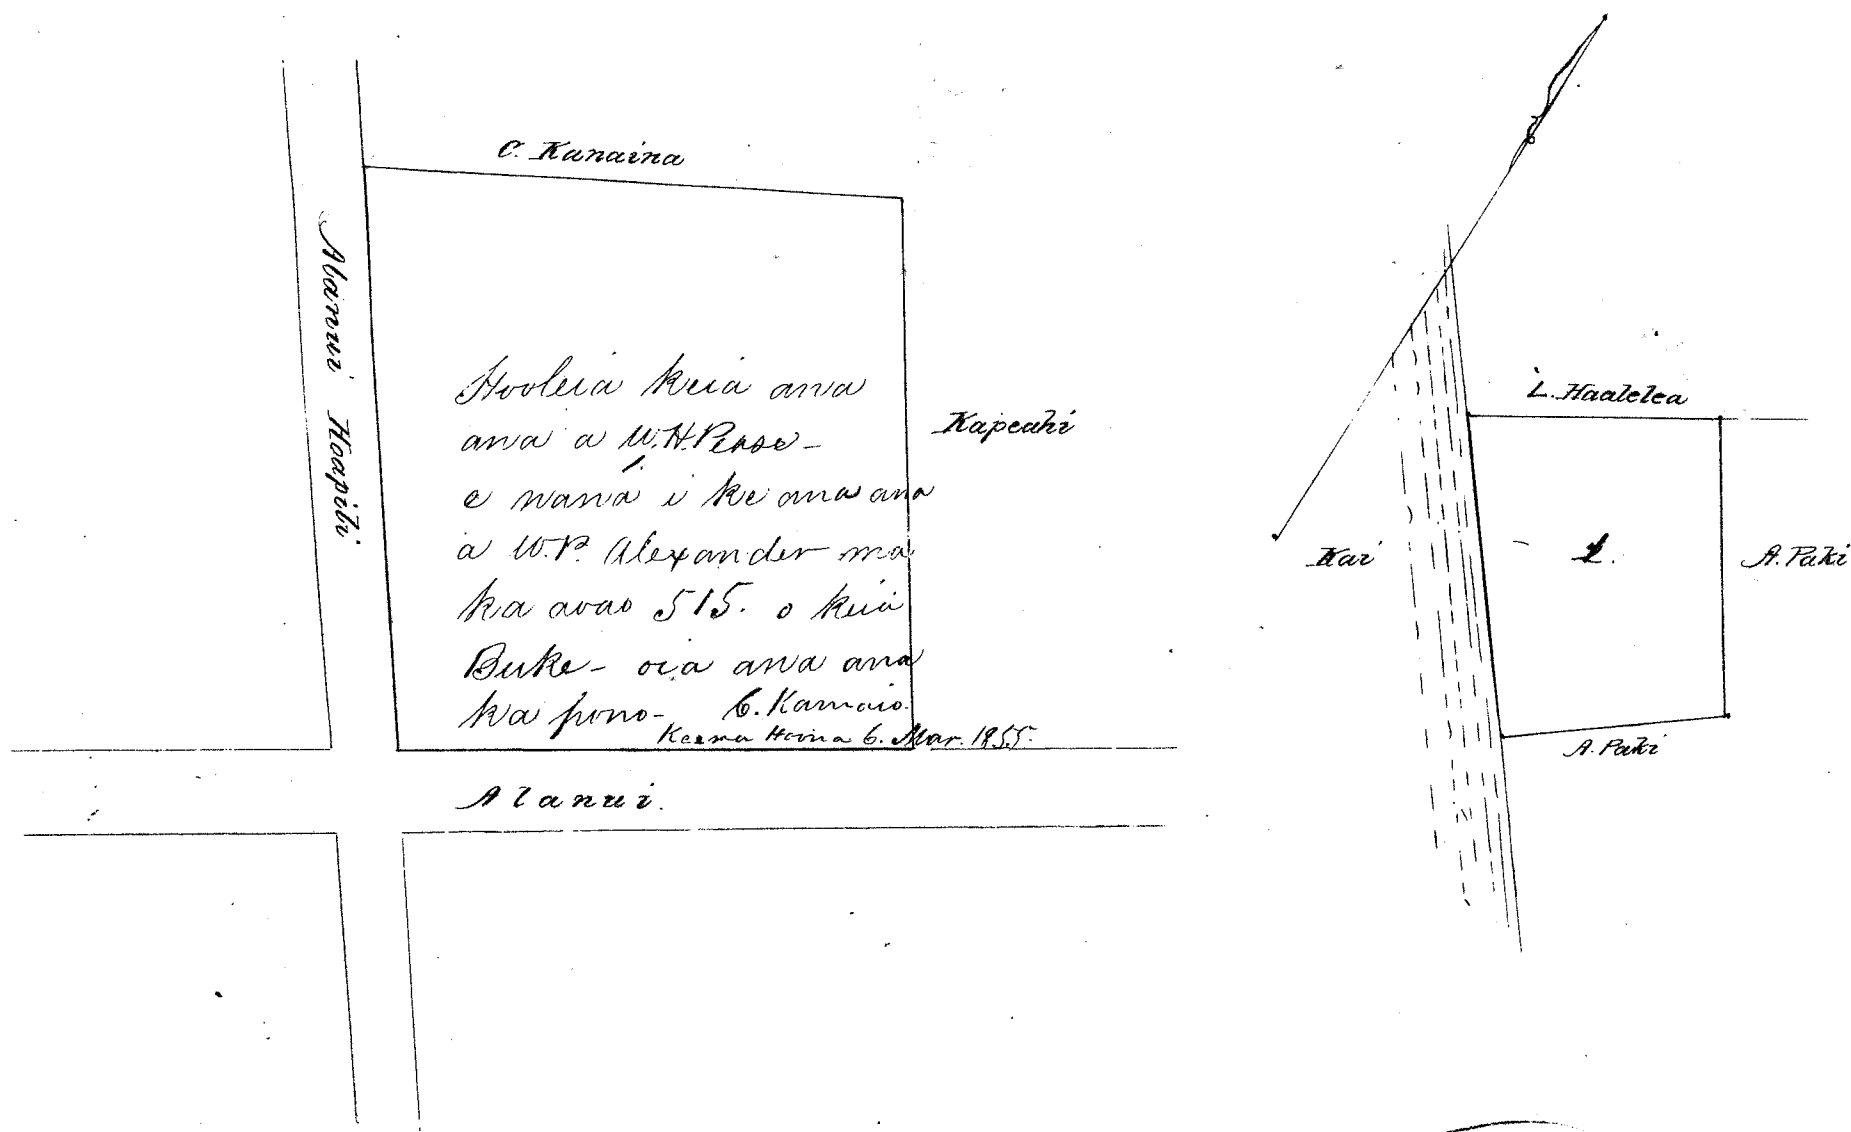 C. Kanaina
Alanui Hoapili
Hooleia keia ana
ana a W.H. Pease -
e nana i ke ana ana
a W.P. Alexander ma
ka aoao 515. o keia
Buke - oia ana ana
ka pono -
C. Kamaio.
Hoona 6. Mar. 1855.
Kapeahi
Alanui.
L. Haalelea
Kai
1.
A. Paki
A. Paki